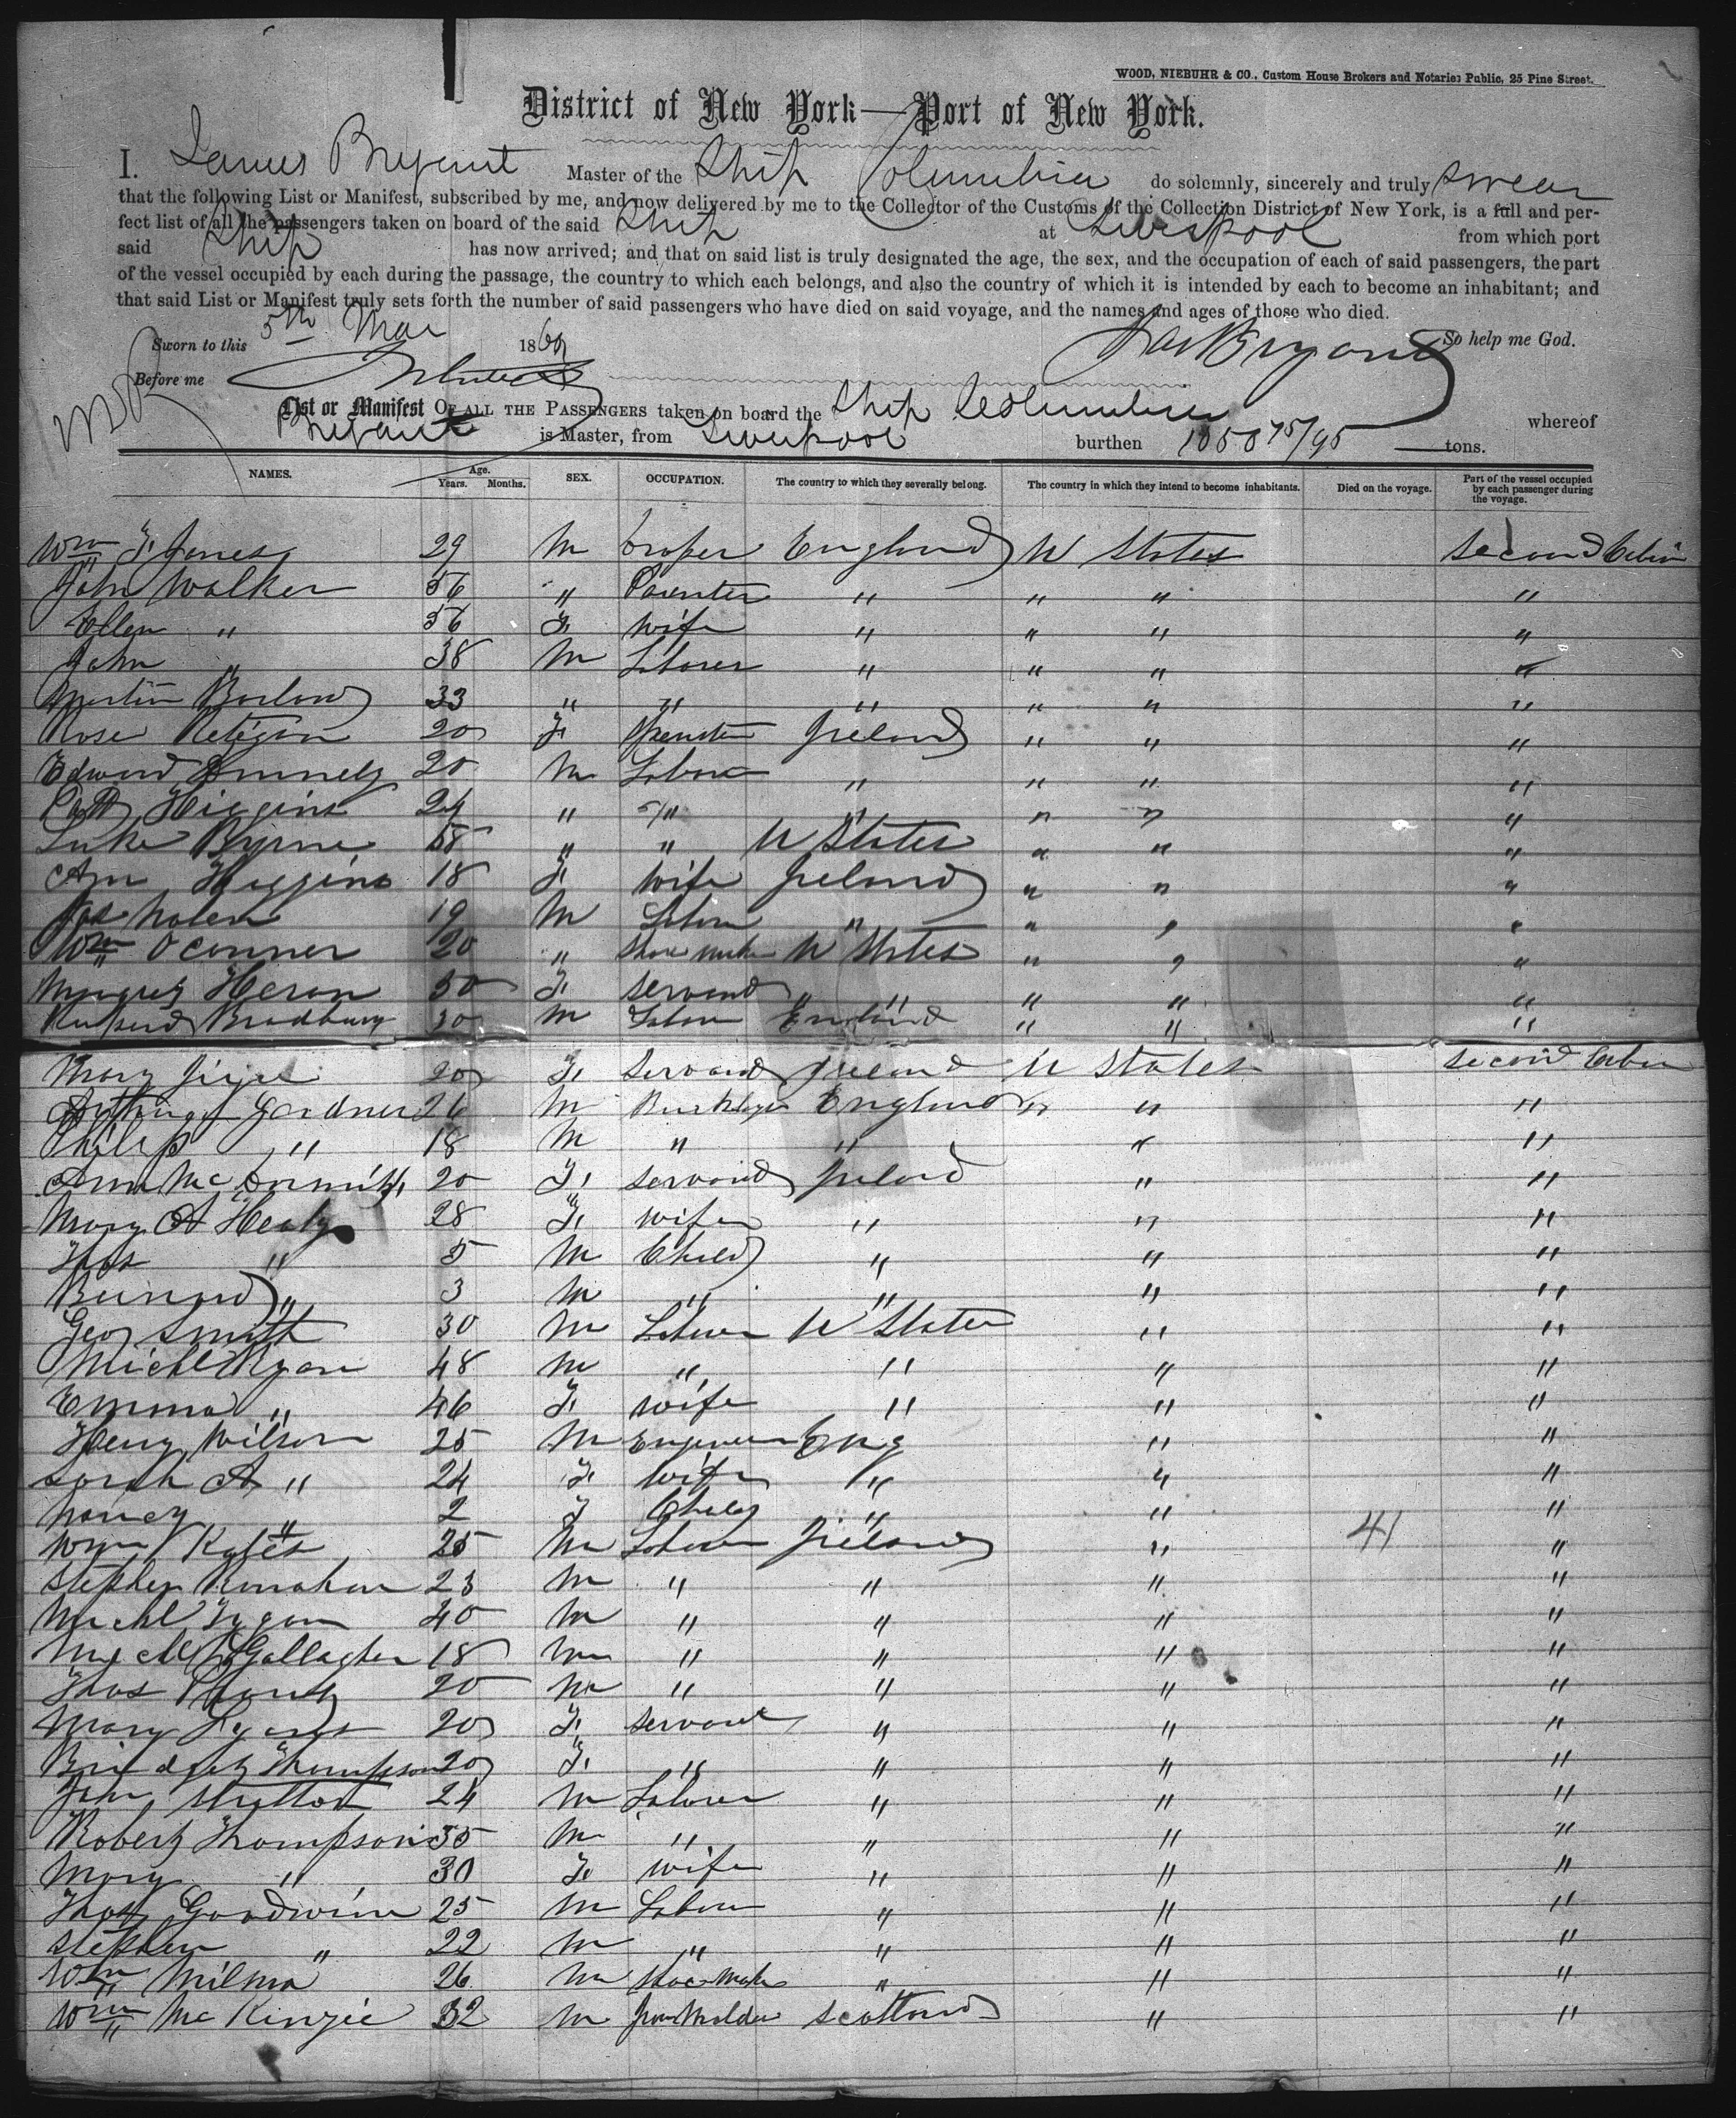 WOOD, NIEBUHR & CO., Custom House Brokers and Notaries Public, 25 Pine Street.
District of New York—Port of New York.
I. James Bryant Master of the Ship Columbia do solemnly, sincerely and truly swear
that the following List or Manifest, subscribed by me, and now delivered by me to the Collector of the Customs of the Collection District of New York, is a full and per-
fect list of all the passengers taken on board of the said Ship at Liverpool from which port
said Ship has now arrived; and that on said list is truly designated the age, the sex, and the occupation of each of said passengers, the part
of the vessel occupied by each during the passage, the country to which each belongs, and also the country of which it is intended by each to become an inhabitant; and
that said List or Manifest truly sets forth the number of said passengers who have died on said voyage, and the names and ages of those who died.
Sworn to this 5th Mar 1869 So help me God.
Jas Bryant
Before me
List or Manifest OF ALL THE PASSENGERS taken on board the Ship Columbia whereof
Bryant is Master, from Liverpool burthen 1050 75/95 tons.
NAMES. Age. Years. Months. SEX. OCCUPATION. The country to which they severally belong. The country in which they intend to become inhabitants. Died on the voyage. Part of the vessel occupied by each passenger during the voyage.
Wm F. Jones 29 M England U States Second Cabin
John Walker 56 " " " " "
Ellen " 56 F. wife " " " "
John " 38 M Laborer " " " "
Martin Barlow 33 " " " " " "
Rose 20 F Ireland " " "
Edward 20 M Labor " " " "
Patk Higgins 24 " " " " " "
Luke Byrne 58 " " U States " " "
Ann Higgins 18 F. wife Ireland " " "
Jas Nolen 19 M Labor " " " "
Wm OConner 20 " Shoe maker U States " " "
Margret Heron 30 F. Servand " " " " "
Bradbury 30 M Labor England " " "
Mary 20 F. Servand Ireland U States Second Cabin
Gardner 26 M England " " "
Philip " 18 M " " " "
Ann McDormitt 20 F. Servand Ireland " "
Mary A Healy 28 F. wife " " "
Thos " 5 M Child " " "
Bernard " 3 M " " " "
Geo Smith 30 M Laborer U States " "
Michl Ryan 48 M " " " "
Emma " 46 F. wife " " "
Heny Wilson 25 M Engineer Eng " "
Sarah A " 24 F. wife " " "
Nancy " 2 F Child " " "
Wm 25 M Laborer Ireland " 41 "
Stephen 23 M " " " "
Michl 40 M " " " "
Michl Gallagher 18 M " " " "
Thos 20 M " " " "
Mary Lyons 20 F. Servant " " "
Bridget Thompson 20 F. " " " "
John 24 M Laborer " " "
Robert Thompson 35 M " " " "
Mary " 30 F. wife " " "
Thos Goodwin 25 M Labor " " "
Stephen " 22 M " " " "
Wm Milma 26 M Shoe Maker " " "
Wm McKinzie 32 M Iron Molder Scotland " "